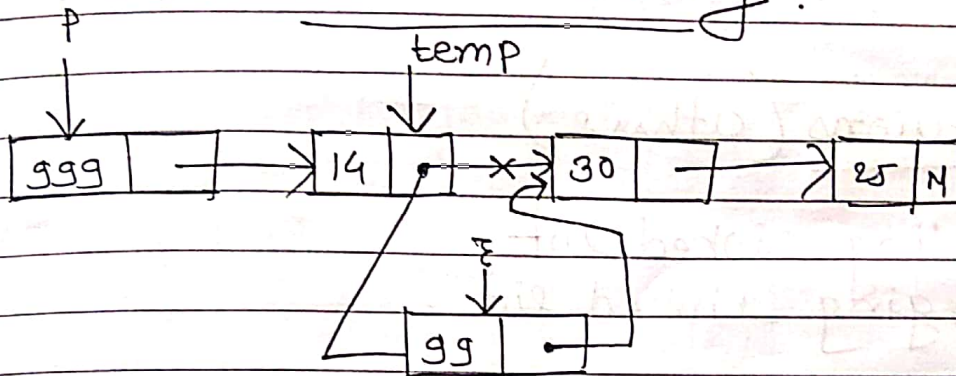 P
temp
999 14 30 25 N
99